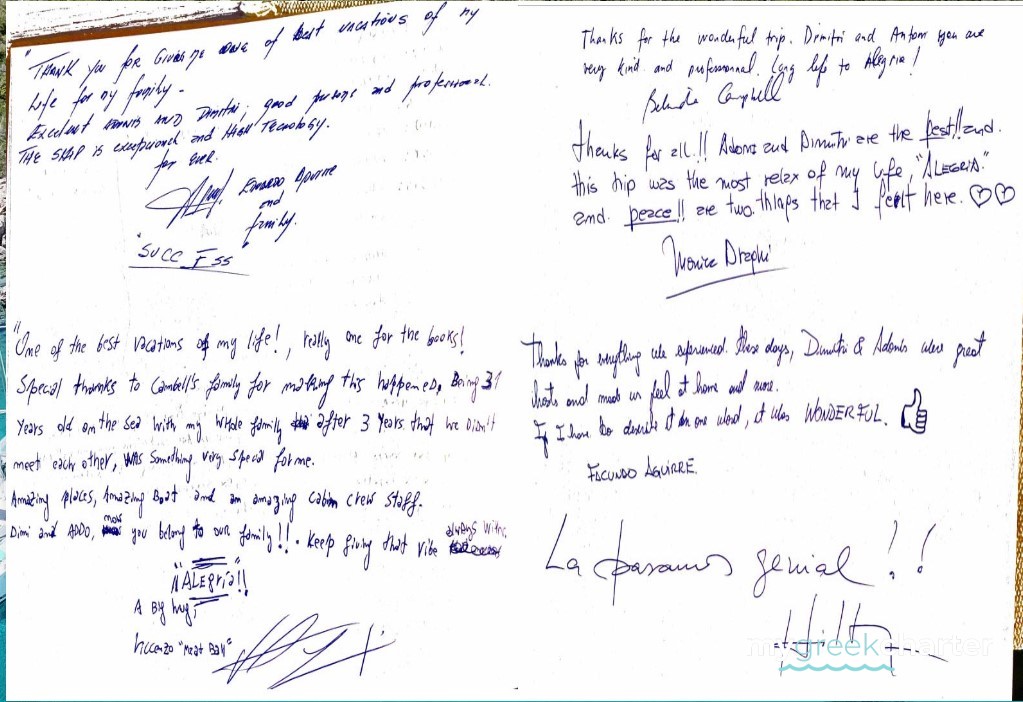 "THANK YOU FOR Giving me one of best vacations of my
Life for my family.
Excelent ADONIS AND Dimitri, good persons and professional.
THE SHIP is exceptional and High Tecnology.
for ever.
EDUARDO Aguirre
and
family.
"SUCCESS"
Thanks for the wonderful trip. Dimitri and Antoni you are
very kind and professionnal. Long life to Alegria!
Belinda Campbell
Thanks for all!! Adonis and Dimitri are the best!! and
this trip was the most relax of my life, "ALEGRIA"
and peace!! are two things that I felt here. ♡♡
Monica Draghi
"One of the best vacations of my life!, really one for the books!
Special thanks to Cambell's family for making this happened, Being 31
Years old on the sea with my whole family after 3 years that we didn't
meet each other, was something very special for me.
Amazing places, Amazing Boat and an amazing cabin crew staff.
Dimi and ADDO, now you belong to our family!!. Keep giving that vibe always with
"ALEgria!!"
A Big hug,
Viccenzo "Meat Ball"
Thanks for everything we experienced these days, Dimitri & Adonis were great
hosts and made us feel at home and more.
If I have to describe it in one word, it was WONDERFUL.
FACUNDO AGUIRRE
La pasamos genial!!
mygreekcharter